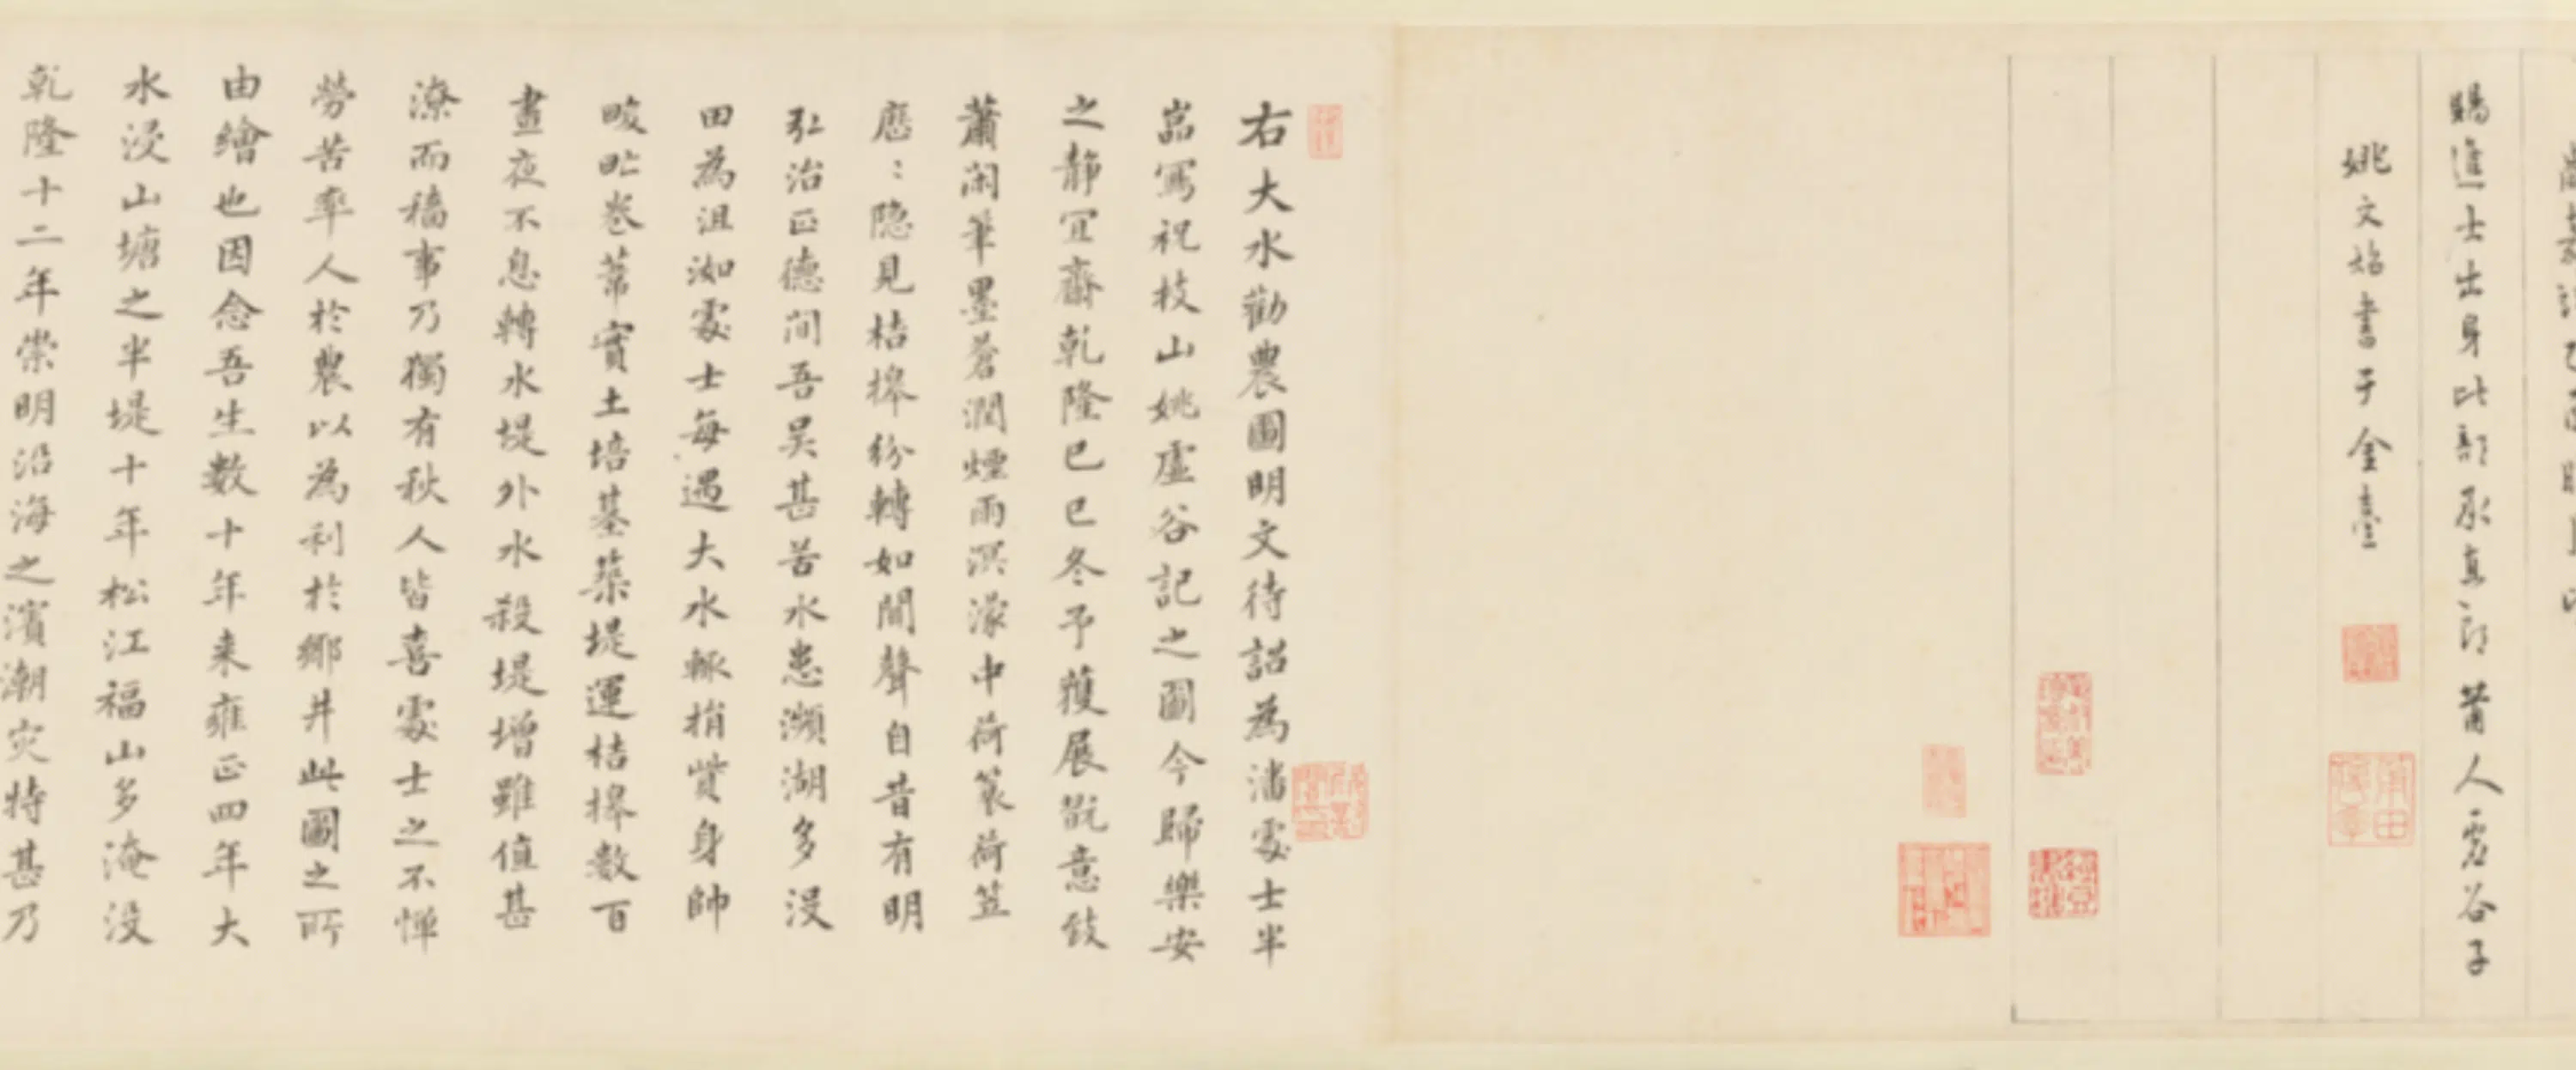 賜進士出身比部承直郎莆人虛谷子
姚文焰書于金臺
右大水勸農圖明文待詔為潘處士半
嵓寫祝枝山姚虛谷記之圖今歸樂安
之靜宜齋乾隆已巳冬予獲展翫意致
蕭閑筆墨蒼潤煙雨溟濛中荷蓑荷笠
歷:隐見桔槹紛轉如聞聲自昔有明
弘治正德间吾吴甚苦水患瀕湖多没
田為沮洳處士每遇大水輒捐貲身帥
畯甿卷葦實土培基築堤運桔槹數百
晝夜不息轉水堤外水殺堤增雖值甚
潦而穡事乃獨有秋人皆喜處士之不憚
勞苦率人於農以為利於鄉井此圖之所
由繪也因念吾生數十年来雍正四年大
水浸山塘之半堤十年松江福山多淹没
乾隆十二年崇明沿海之濱潮灾特甚乃